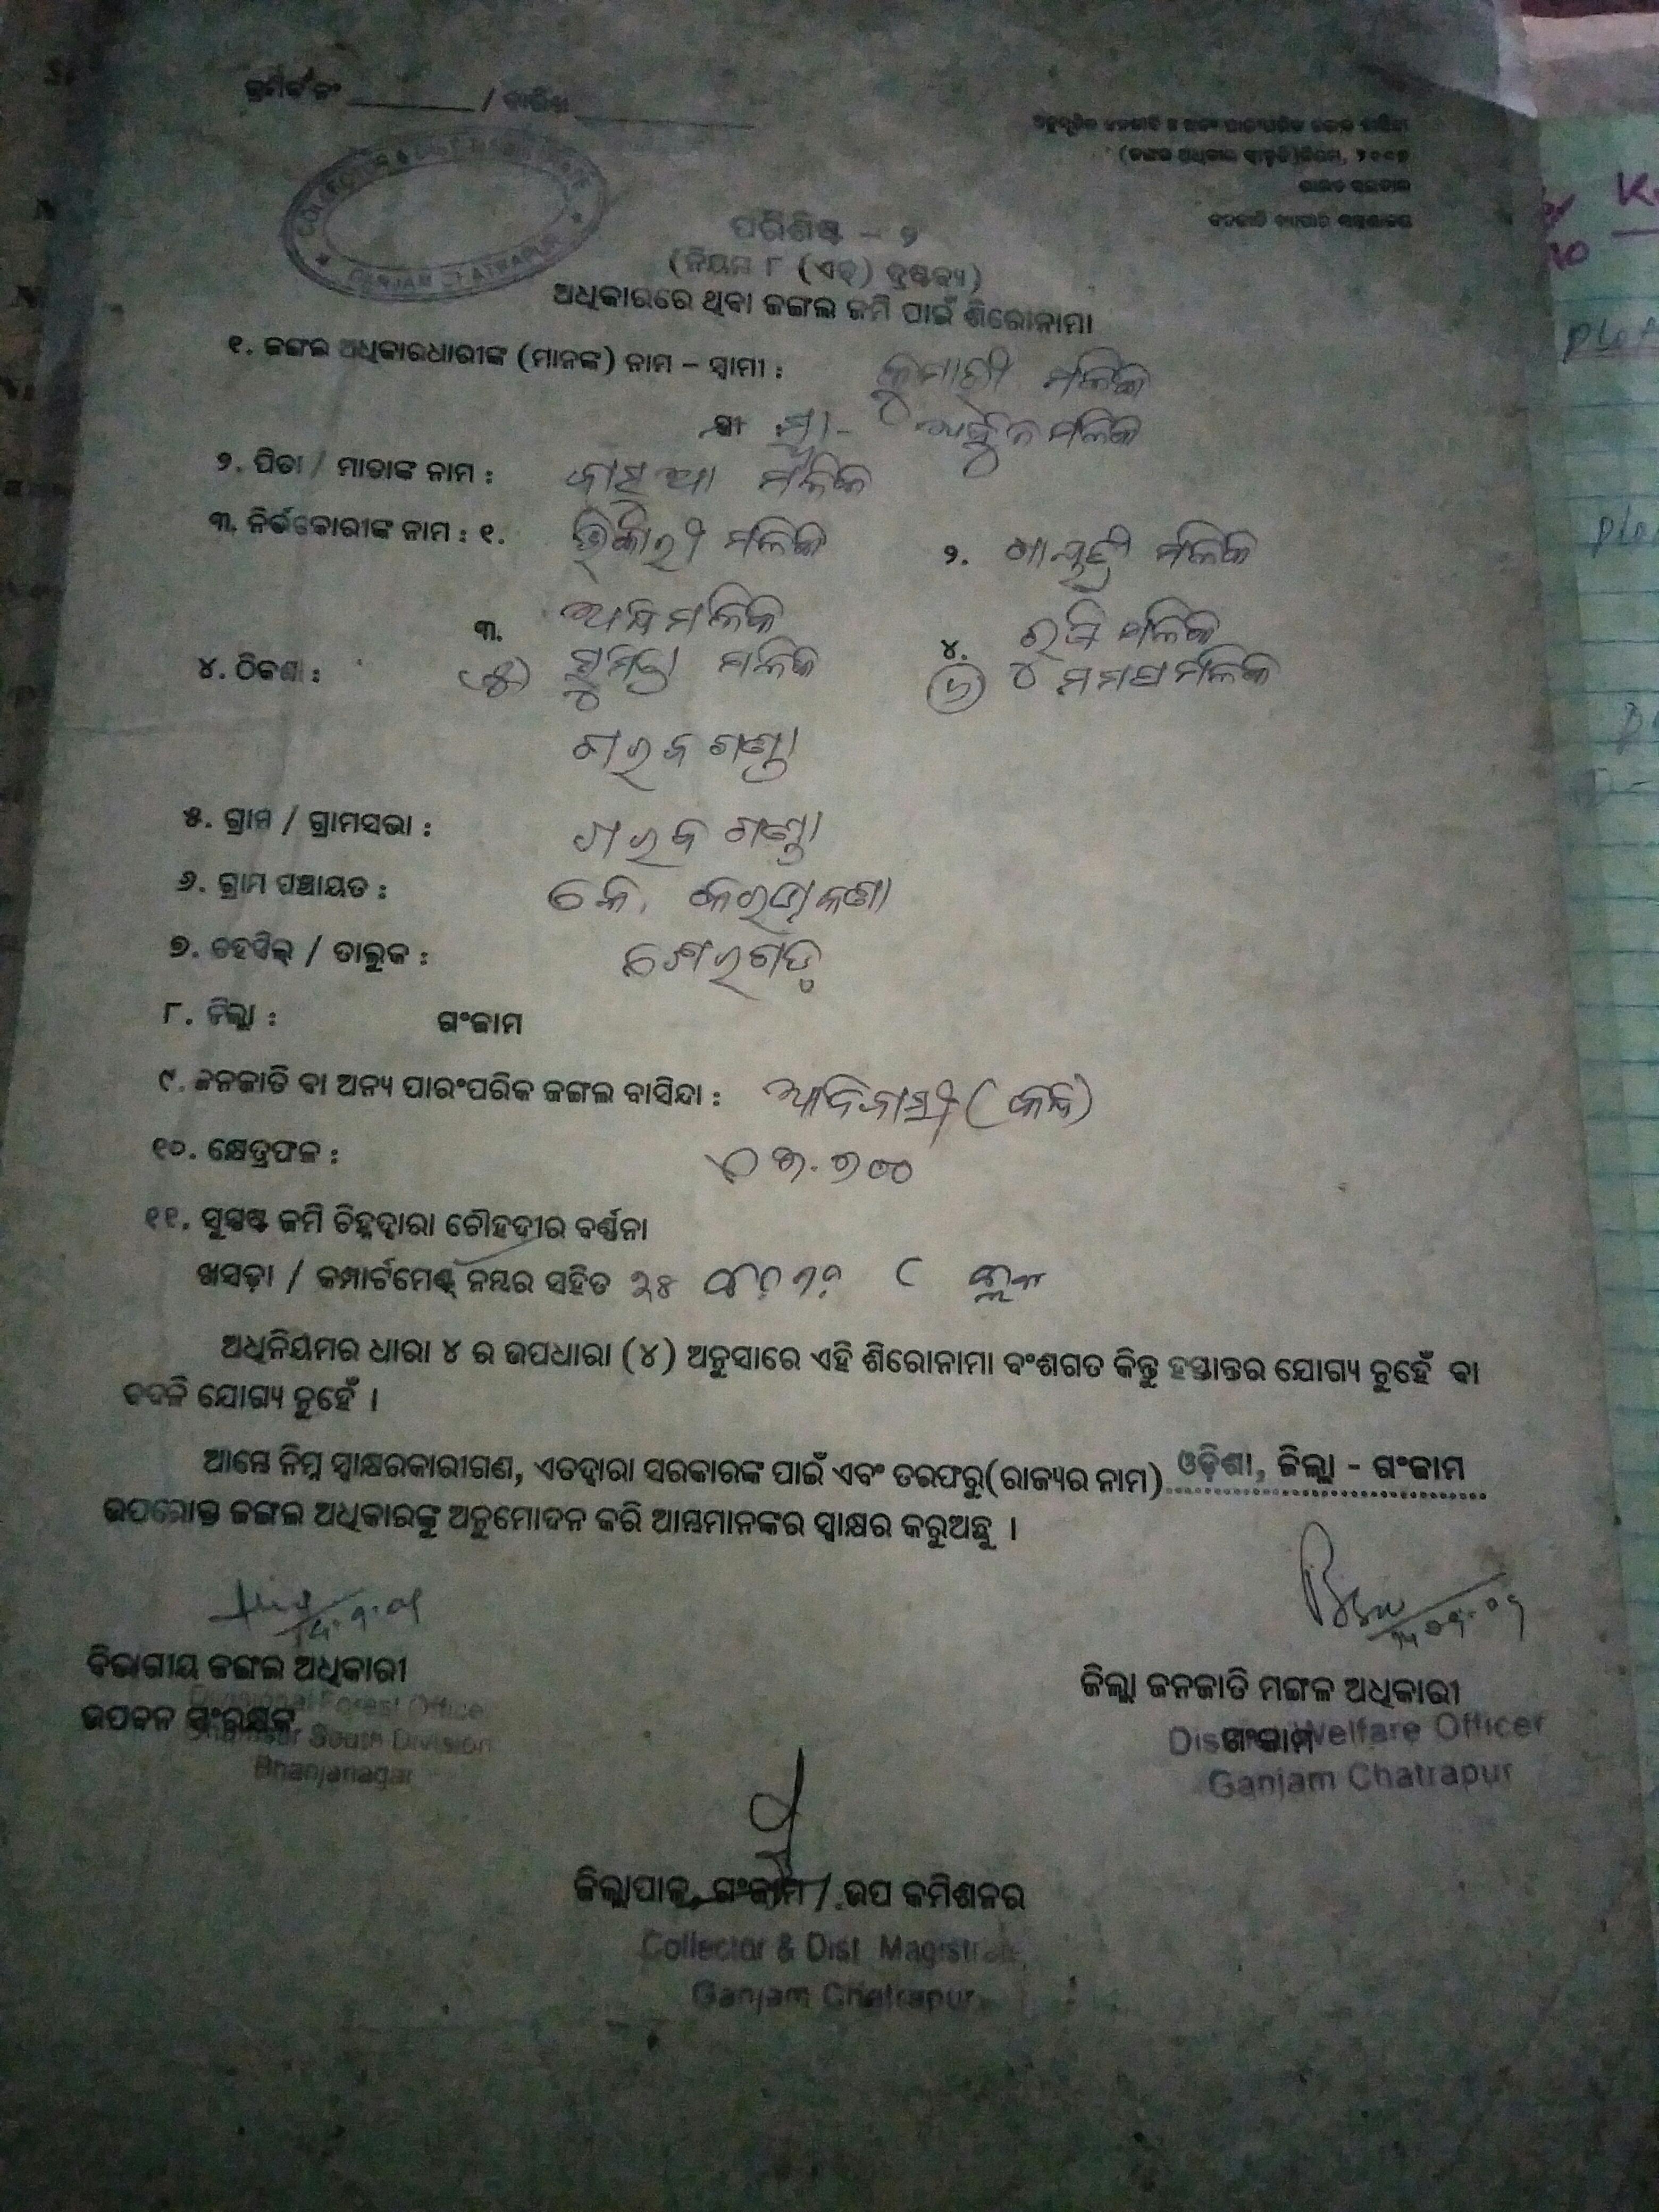 କ୍ରମିକ ନଂ / ତାରିଖ
ଅନୁସୂଚିତ ଜନଜାତି ଓ ଅନ୍ୟ ପାରମ୍ପରିକ ଜଙ୍ଗଲ ବାସିନ୍ଦା
(ଜଙ୍ଗଲ ଅଧିକାର ସ୍ୱୀକୃତି)ନିୟମ, ୨୦୦୭
ଭାରତ ସରକାର
ଜନଜାତି ବ୍ୟାପାର ମନ୍ତ୍ରଣାଳୟ
COLLECTOR & DIST. MAGISTRATE
GANJAM CHATRAPUR
ପରିଶିଷ୍ଟ – ୨
(ନିୟମ ୮ (ଏଚ୍) ଦ୍ରଷ୍ଟବ୍ୟ)
ଅଧିକାରରେ ଥିବା ଜଙ୍ଗଲ ଜମି ପାଇଁ ଶିରୋନାମା
୧. ଜଙ୍ଗଲ ଅଧିକାରଧାରୀଙ୍କ (ମାନଙ୍କ) ନାମ – ସ୍ୱାମୀ : କୁମାରୀ ମଳିକ
ସ୍ତ୍ରୀ ମଳିକ
୨. ପିତା / ମାତାଙ୍କ ନାମ : ମଳିକ
୩. ନିର୍ଭରକାରୀଙ୍କ ନାମ : ୧. ଭିକାରୀ ମଳିକ ୨. ଗାୟତ୍ରୀ ମଳିକ
୩. ମଳିକ ୪. ମଳିକ
୪. ଠିକଣା : (୫) ମଳିକ (୬) ମଳିକ
ଗରବ ଗଣ୍ଡା
୫. ଗ୍ରାମ / ଗ୍ରାମସଭା : ଗରବ ଗଣ୍ଡା
୬. ଗ୍ରାମ ପଞ୍ଚାୟତ : କେ.
୭. ତହସିଲ୍ / ତାଲୁକ : ଶେରଗଡ଼
୮. ଜିଲ୍ଲା : ଗଂଜାମ
୯. ଜନଜାତି ବା ଅନ୍ୟ ପାରଂପରିକ ଜଙ୍ଗଲ ବାସିନ୍ଦା : ଆଦିବାସୀ (କନ୍ଧ)
୧୦. କ୍ଷେତ୍ରଫଳ :
୧୧. ସୁସ୍ପଷ୍ଟ ଜମି ଚିହ୍ନଦ୍ୱାରା ଚୌହଦୀର ବର୍ଣ୍ଣନା
ଖସଡ଼ା / କମ୍ପାର୍ଟମେଣ୍ଟ୍ ନମ୍ବର ସହିତ
ଅଧିନିୟମର ଧାରା ୪ ର ଉପଧାରା (୪) ଅନୁସାରେ ଏହି ଶିରୋନାମା ବଂଶଗତ କିନ୍ତୁ ହସ୍ତାନ୍ତର ଯୋଗ୍ୟ ନୁହେଁ ବା
ବଦଳି ଯୋଗ୍ୟ ନୁହେଁ ।
ଆମ୍ଭେ ନିମ୍ନ ସ୍ୱାକ୍ଷରକାରୀଗଣ, ଏତଦ୍ୱାରା ସରକାରଙ୍କ ପାଇଁ ଏବଂ ତରଫରୁ(ରାଜ୍ୟର ନାମ) ଓଡ଼ିଶା, ଜିଲ୍ଲା - ଗଂଜାମ
ଉପରୋକ୍ତ ଜଙ୍ଗଲ ଅଧିକାରଙ୍କୁ ଅନୁମୋଦନ କରି ଆମ୍ଭମାନଙ୍କର ସ୍ୱାକ୍ଷର କରୁଅଛୁ ।
ବିଭାଗୀୟ ଜଙ୍ଗଲ ଅଧିକାରୀ
ଉପବନ ସଂରକ୍ଷକ
Divisional Forest Officer
Ghumsur South Division
Bhanjanagar
ଜିଲ୍ଲା ଜନଜାତି ମଙ୍ଗଳ ଅଧିକାରୀ
ଗଂଜାମ
District Welfare Officer
Ganjam Chatrapur
ଜିଲ୍ଲାପାଳ, ଗଂଜାମ / ଉପ କମିଶନର
Collector & Dist. Magistrate
Ganjam Chatrapur